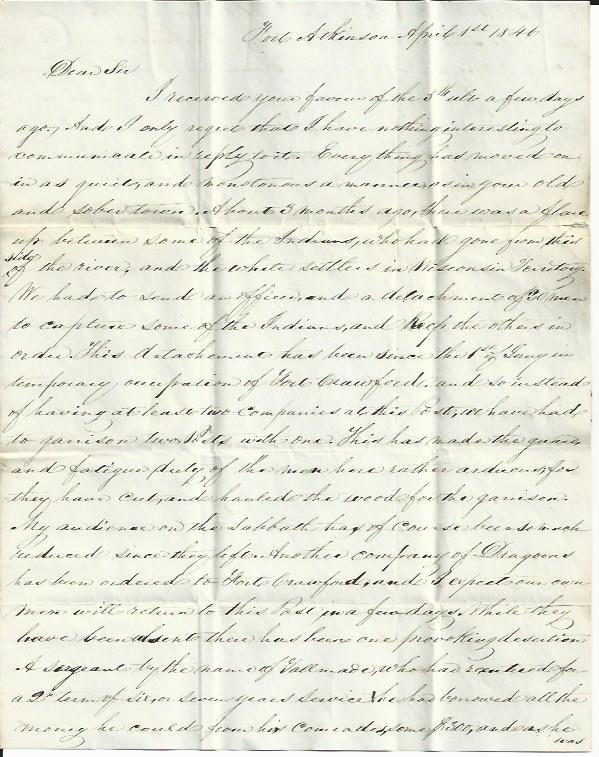 Fort Atkinson April 1st 1846
Dear Sir
I received your favour of the 3d ult a few days
ago, And I only regret that I have nothing interesting to
communicate in reply to it. Everything has moved on
in as quiet, and monotonous a manner as in your old
and sober town. About 3 months ago, there was a flare
up between some of the Indians, who had gone from this
side
of the river, and the white settlers in Wisconsin Territory.
We had to send an officer, and a detachment of 30 men
to capture some of the Indians, and Keep the others in
order. This detachement has been since the 1st of Jany in
temporary occupation of Fort Crawford, and so instead
of having at least two Companies at this Post, we have had
to garrison two Posts with one. This has made the guard
and fatigue duty, of the men here rather arduous, for
they have cut, and hauled the wood for the garrison.
My audience on the Sabbath has of Course been so much
reduced since they left. Another company of Dragoons
has been ordered to Fort Crawford, and I expect our own
men will return to this Post, in a few days. While they
have been absent there has been one provoking desertion
A sergeant by the name of Tallmade, who had reentered for
a 2d term of six, or seven years service, he had borrowed all the
money he could from his Comrades, some $300, and as he
was